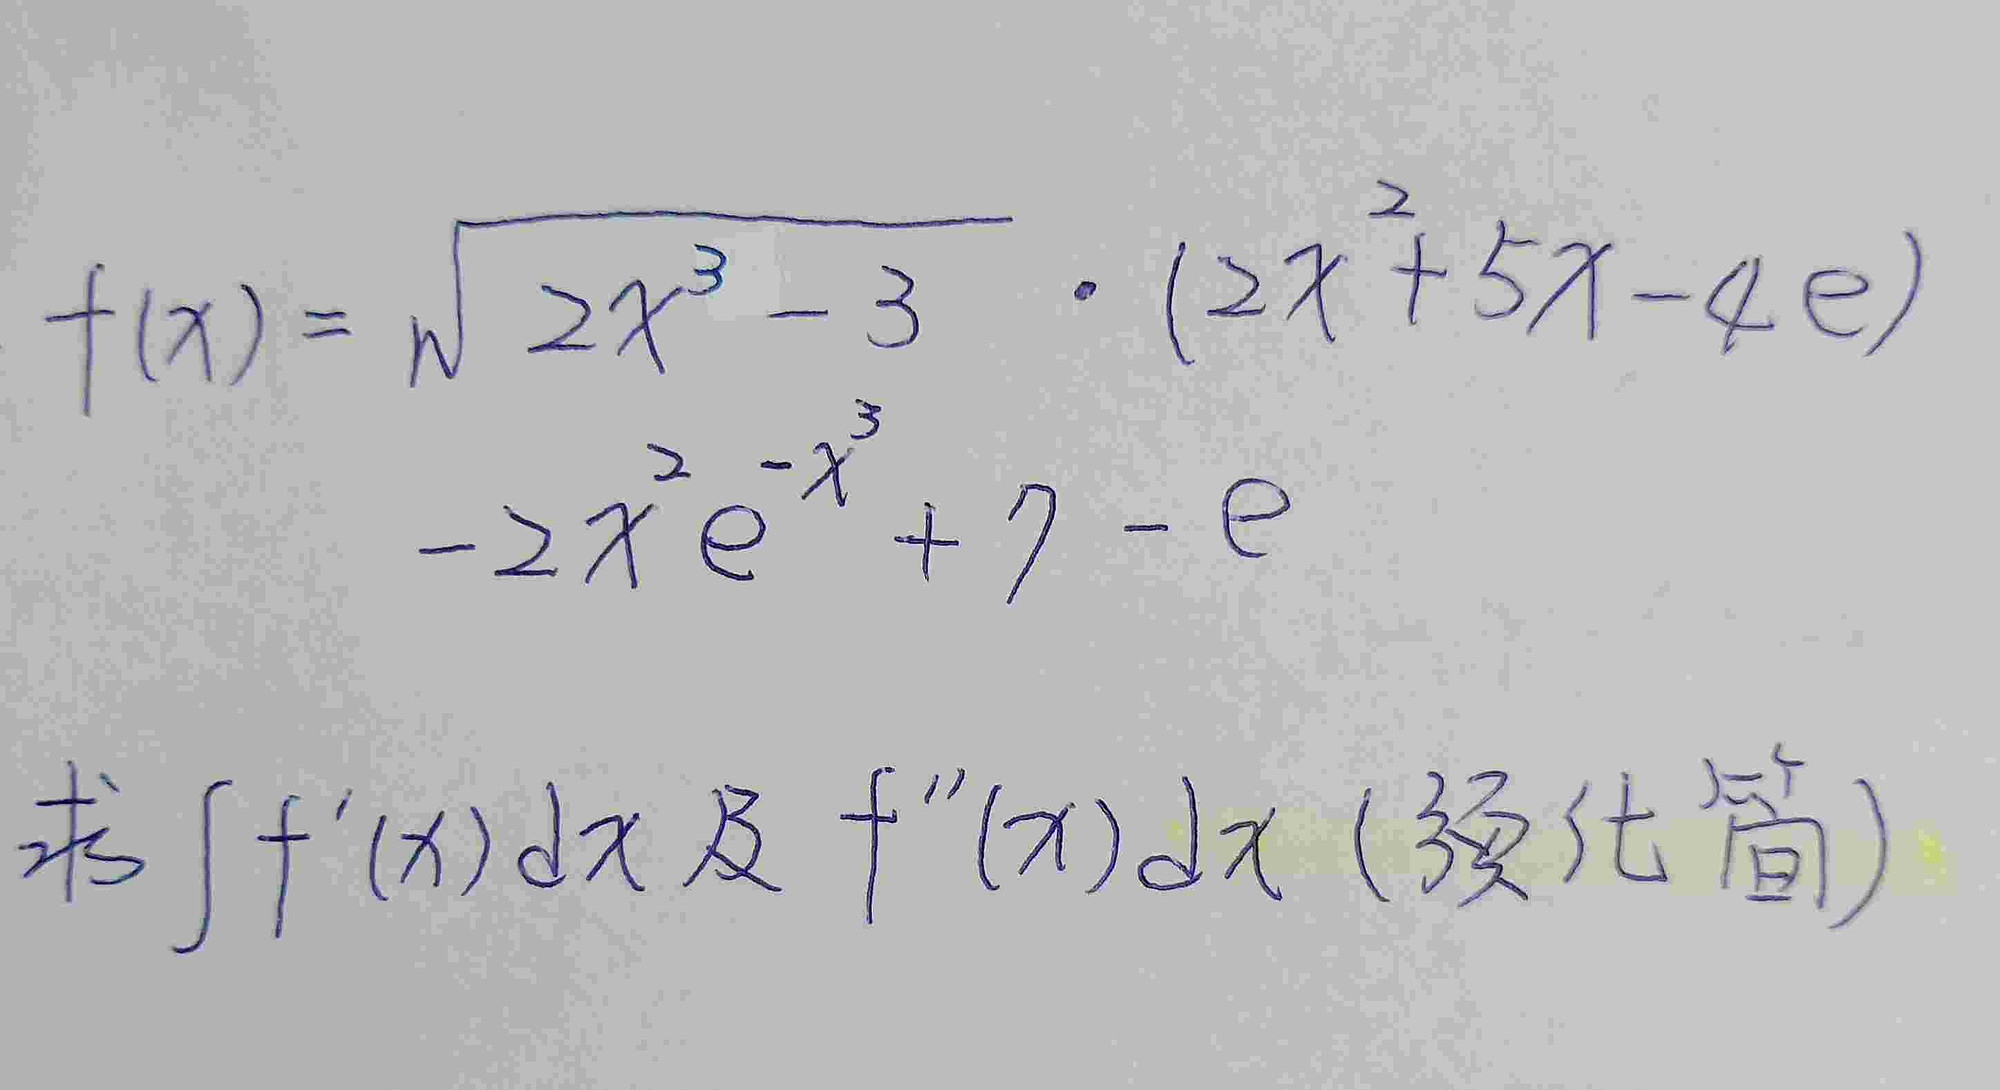 f(x) = √(2x³ - 3) · (2x² + 5x - 4e)
- 2x²e^(-x³) + 7 - e
求 ∫f'(x)dx 及 f''(x)dx (须化简)